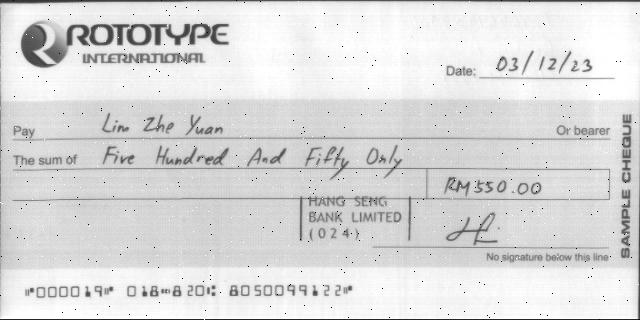 ROTOTYPE
INTERNATIONAL
Date: 03/12/23
Pay Lim Zhe Yuan Or bearer
The sum of Five Hundred And Fifty Only
RM550.00
HANG SENG
BANK LIMITED
(024)
No signature below this line
SAMPLE CHEQUE
⑈000019⑈ 018⑉820⑆ 8050099122⑈